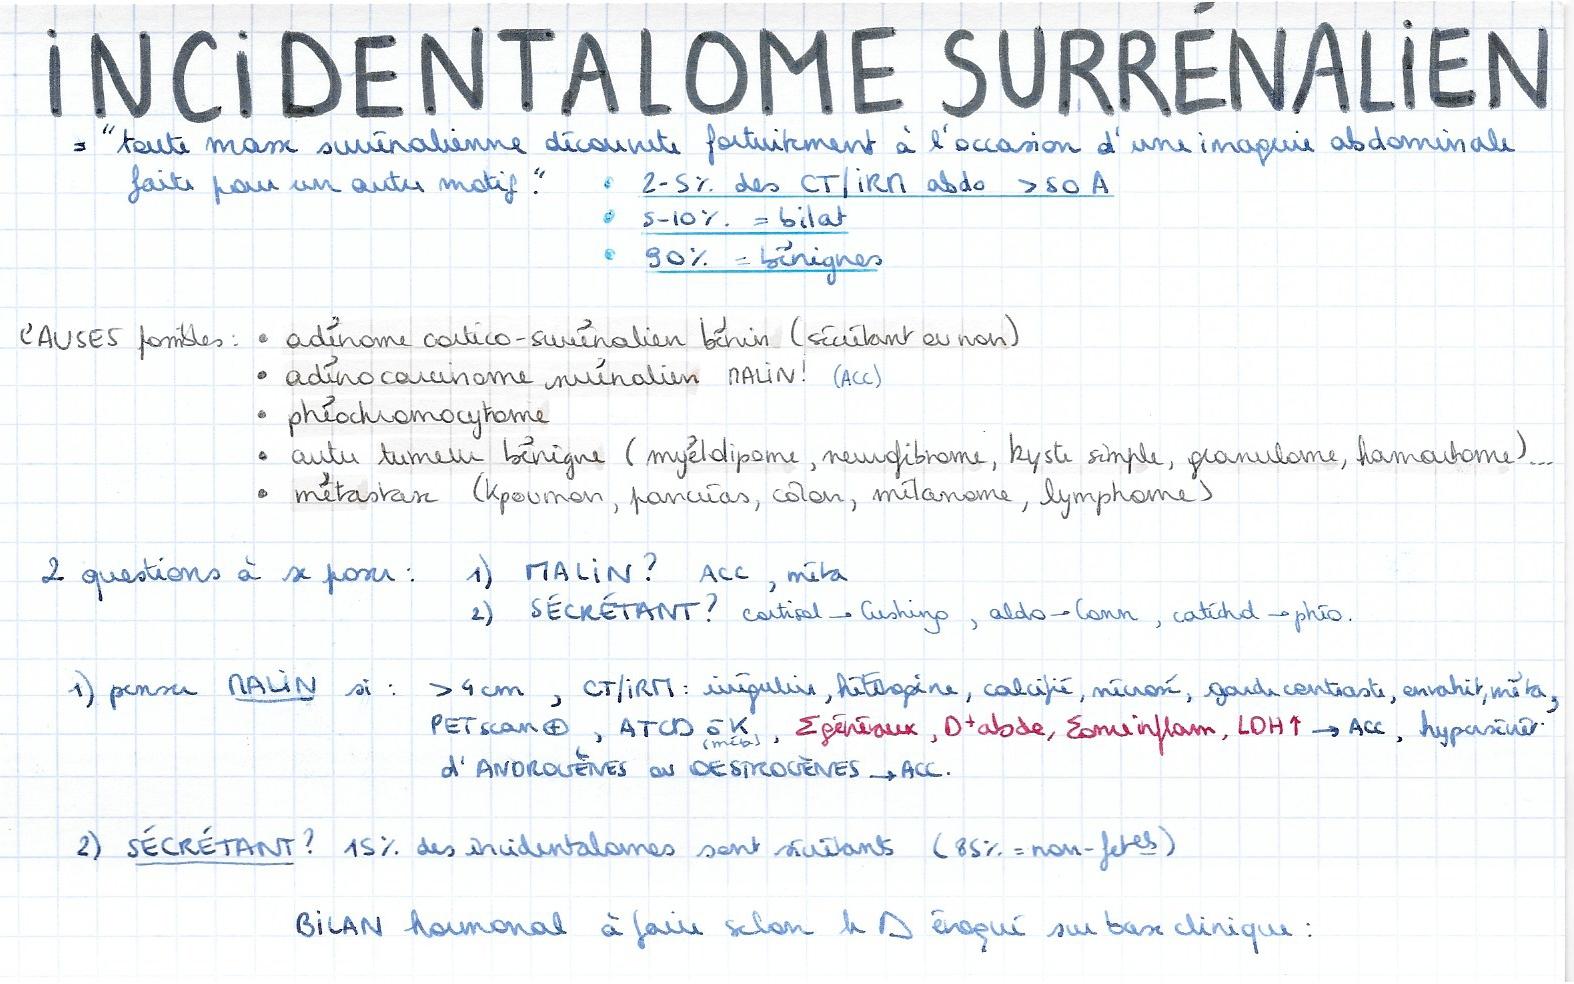 INCIDENTALOME SURRÉNALIEN
= "toute masse surrénalienne découverte fortuitement à l'occasion d'une imagerie abdominale
faite pour un autre motif."
• 2-5% des CT/IRM abdo >50A
• 5-10% = bilat
• 90% = bénignes
CAUSES possibles : • adénome cortico-surrénalien bénin (sécrétant ou non)
• adénocarcinome surrénalien MALIN! (ACC)
• phéochromocytome
• autre tumeur bénigne (myélolipome, neurofibrome, kyste simple, granulome, hamartome)...
• métastase (K poumon, pancréas, côlon, mélanome, lymphome)
2 questions à se poser : 1) MALIN? ACC, méta
2) SÉCRÉTANT? cortisol → Cushing, aldo → Conn, catéchol → phéo.
1) penser MALIN si : >4cm, CT/IRM : irrégulier, hétérogène, calcifié, nécrosé, garde contraste, envahit, méta,
PETscan ⊕, ATCD K (méta), Σ généraux, D+ abdo, inflam, LDH↑ → ACC, hypersécrét°
d'ANDROGÈNES ou OESTROGÈNES → ACC.
2) SÉCRÉTANT? 15% des incidentalomes sont sécrétants (85% = non-fctels)
BILAN hormonal à faire selon le D évoqué sur base clinique :